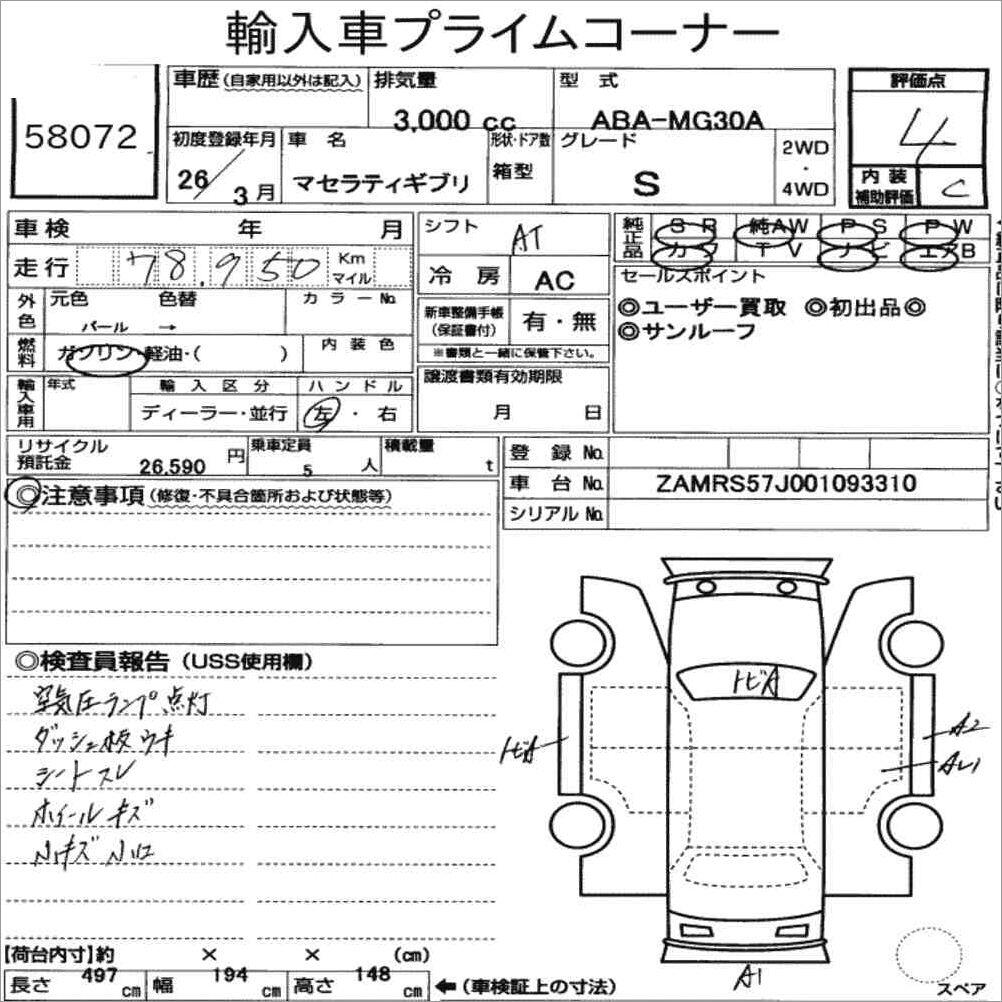 輸入車プライムコーナー
58072
車歴(自家用以外は記入)
排気量
3,000 cc
型 式
ABA-MG30A
評価点
4
初度登録年月
26/3月
車 名
マセラティギブリ
形状・ドア数
箱型
グレード
S
2WD
・
4WD
内 装
補助評価
C
車検 年 月
シフト
AT
純正品
SR 純AW PS PW
カワ TV ナビ エアB
走行 78,950 Km
マイル
冷 房
AC
セールスポイント
◎ユーザー買取 ◎初出品◎
◎サンルーフ
外色
元色 色替
カラーNo.
パール →
新車整備手帳
(保証書付)
有・無
※書類と一緒に保管下さい。
燃料
ガソリン・軽油・( )
内 装 色
輸入車用
年式
輸 入 区 分
ハ ン ド ル
ディーラー・並行
左 ・ 右
譲渡書類有効期限
月 日
リサイクル
預託金
26,590 円
乗車定員
5 人
積載量
t
登 録 No.
車 台 No.
ZAMRS57J001093310
シリアル No.
◎注意事項(修復・不具合箇所および状態等)
◎検査員報告(USS使用欄)
空気圧ランプ点灯
ダッシュ板ウキ
シートスレ
ホイールキズ
トビA
トビA
A2
A1
【荷台内寸】約 × × (cm)
長さ 497 cm 幅 194 cm 高さ 148 cm ←(車検証上の寸法)
スペア